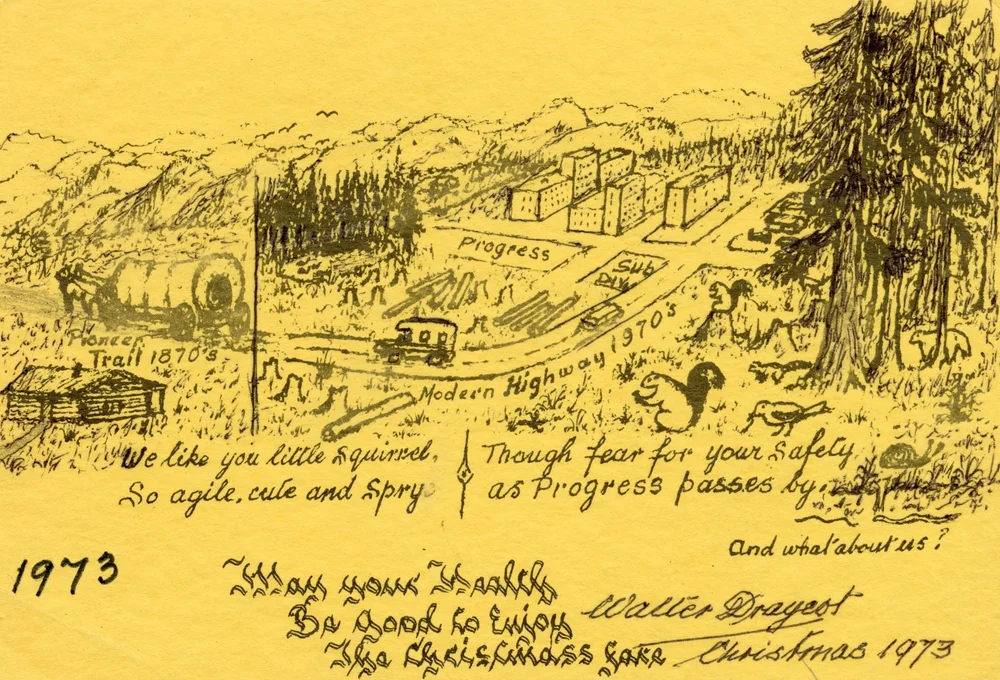 Progress
SUB
DIV
Pioneer
Trail 1870's
Modern Highway 1970's
We like you little squirrel,
So agile, cute and Spry
Though fear for your Safety
as Progress passes by.
And what about us?
1973
May your Health
Be Good to Enjoy
The Christmass fare
Walter Draycot
Christmas 1973